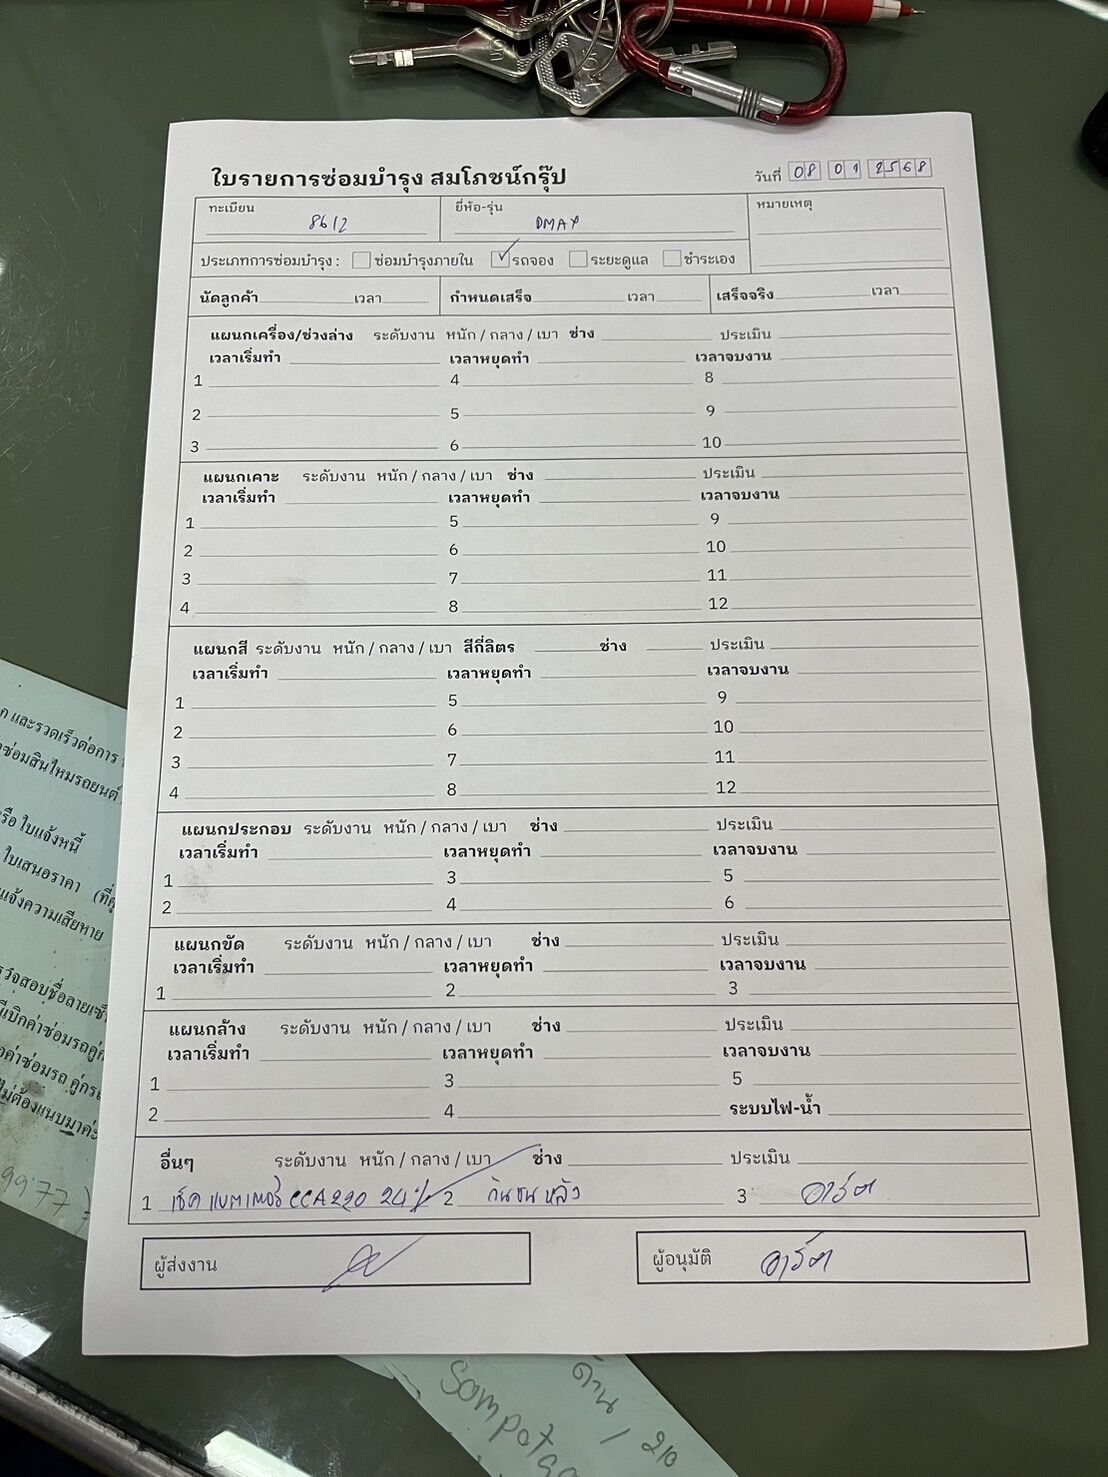 ใบรายการซ่อมบำรุง สมโภชน์กรุ๊ป
วันที่ 08 01 2568
ทะเบียน 8612
ยี่ห้อ-รุ่น DMAX
หมายเหตุ
ประเภทการซ่อมบำรุง : ซ่อมบำรุงภายใน ✓ รถจอง ระยะดูแล ชำระเอง
นัดลูกค้า เวลา กำหนดเสร็จ เวลา เสร็จจริง เวลา
แผนกเครื่อง/ช่วงล่าง ระดับงาน หนัก / กลาง / เบา ช่าง ประเมิน
เวลาเริ่มทำ เวลาหยุดทำ เวลาจบงาน
1 4 8
2 5 9
3 6 10
แผนกเคาะ ระดับงาน หนัก / กลาง / เบา ช่าง ประเมิน
เวลาเริ่มทำ เวลาหยุดทำ เวลาจบงาน
1 5 9
2 6 10
3 7 11
4 8 12
แผนกสี ระดับงาน หนัก / กลาง / เบา สีกี่ลิตร ช่าง ประเมิน
เวลาเริ่มทำ เวลาหยุดทำ เวลาจบงาน
1 5 9
2 6 10
3 7 11
4 8 12
แผนกประกอบ ระดับงาน หนัก / กลาง / เบา ช่าง ประเมิน
เวลาเริ่มทำ เวลาหยุดทำ เวลาจบงาน
1 3 5
2 4 6
แผนกขัด ระดับงาน หนัก / กลาง / เบา ช่าง ประเมิน
เวลาเริ่มทำ เวลาหยุดทำ เวลาจบงาน
1 2 3
แผนกล้าง ระดับงาน หนัก / กลาง / เบา ช่าง ประเมิน
เวลาเริ่มทำ เวลาหยุดทำ เวลาจบงาน
1 3 5
2 4 ระบบไฟ-น้ำ
อื่นๆ ระดับงาน หนัก / กลาง / เบา ช่าง ประเมิน
1 เช็คแบตเตอรี่ CCA 220 24% 2 กันชนหลัง 3 อาร์ต
ผู้ส่งงาน
ผู้อนุมัติ อาร์ต
ค และรวดเร็วต่อการ
ซ่อมสินไหมรถยนต์
รือ ใบแจ้งหนี้
ใบเสนอราคา
แจ้งความเสียหาย
รวจสอบชื่อสายเซ็
เบิกค่าซ่อมรถคู่
ค่าซ่อมรถ คู่กร
ไม่ต้องแนบมาค่ะ
9977
ด้าน / 210